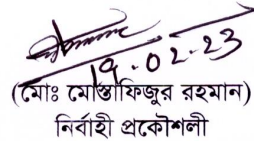 19.02.23
(মোঃ মোস্তাফিজুর রহমান)
নির্বাহী প্রকৌশলী